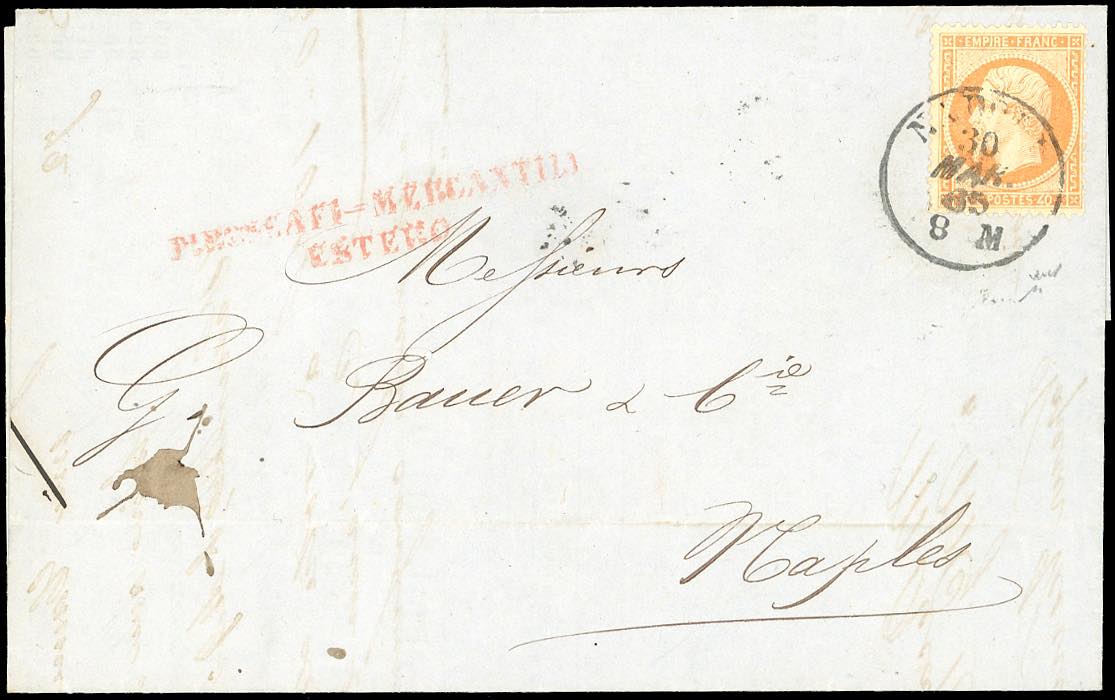 EMPIRE · FRANC
30
MAR.
65
8 M
POSTES 40
PIROSCAFI=MERCANTILI
ESTERO
Messieurs
G. Bauer & Cie
Naples